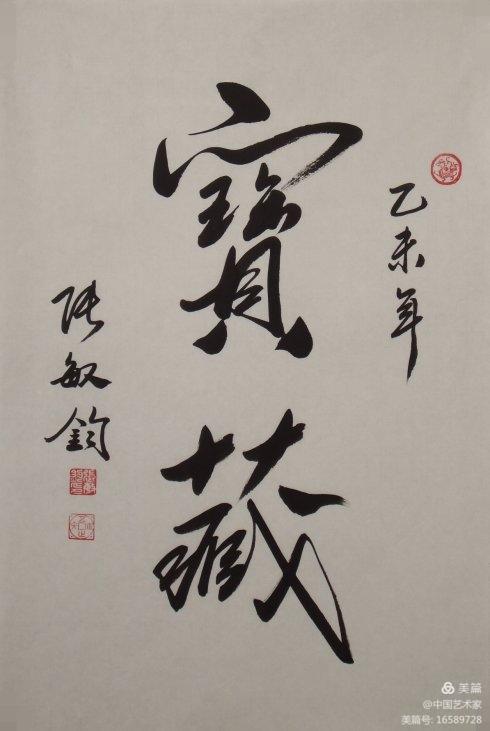 乙未年
寶藏
张敏鈞
美篇
@中国艺术家
美篇号: 16589728